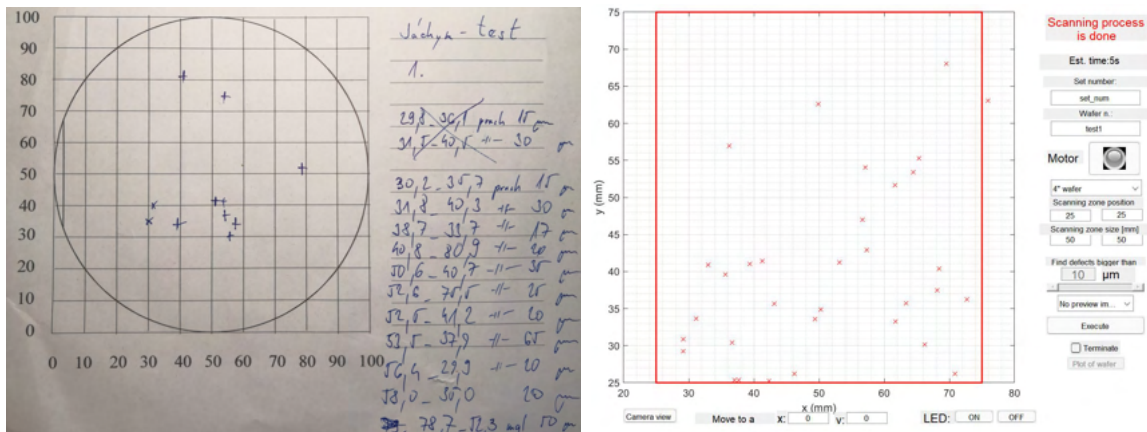 100
90
80
70
60
50
40
30
20
10
0
0 10 20 30 40 50 60 70 80 90 100
Jáchym - test
1.
29,8 - 36,1 prach 15 µm
31,5 - 40,5 -11- 30 µm
30,2 - 35,7 prach 15 µm
31,8 - 40,3 -11- 30
38,7 - 33,7 -11- 17
40,8 - 80,9 -11- 20 µm
50,6 - 40,7 -11- 35 µm
52,6 - 75,5 -11- 25 µm
52,5 - 41,2 -11- 20 µm
53,5 - 37,9 -11- 65 µm
56,4 - 29,9 -11- 20 µm
58,0 - 35,0 20 µm
78,7 - 52,3 50 µm
75
70
65
60
55
50
45
40
35
30
25
20
20 30 40 50 60 70 80
y (mm)
x (mm)
Scanning process
is done
Est. time:5s
Set number:
set_num
Wafer n.:
test1
Motor
4" wafer
Scanning zone position
25 25
Scanning zone size [mm]
50 50
Find defects bigger than
10 µm
No preview im...
Execute
Terminate
Plot of wafer
Camera view
Move to a x: 0 y: 0
LED: ON OFF